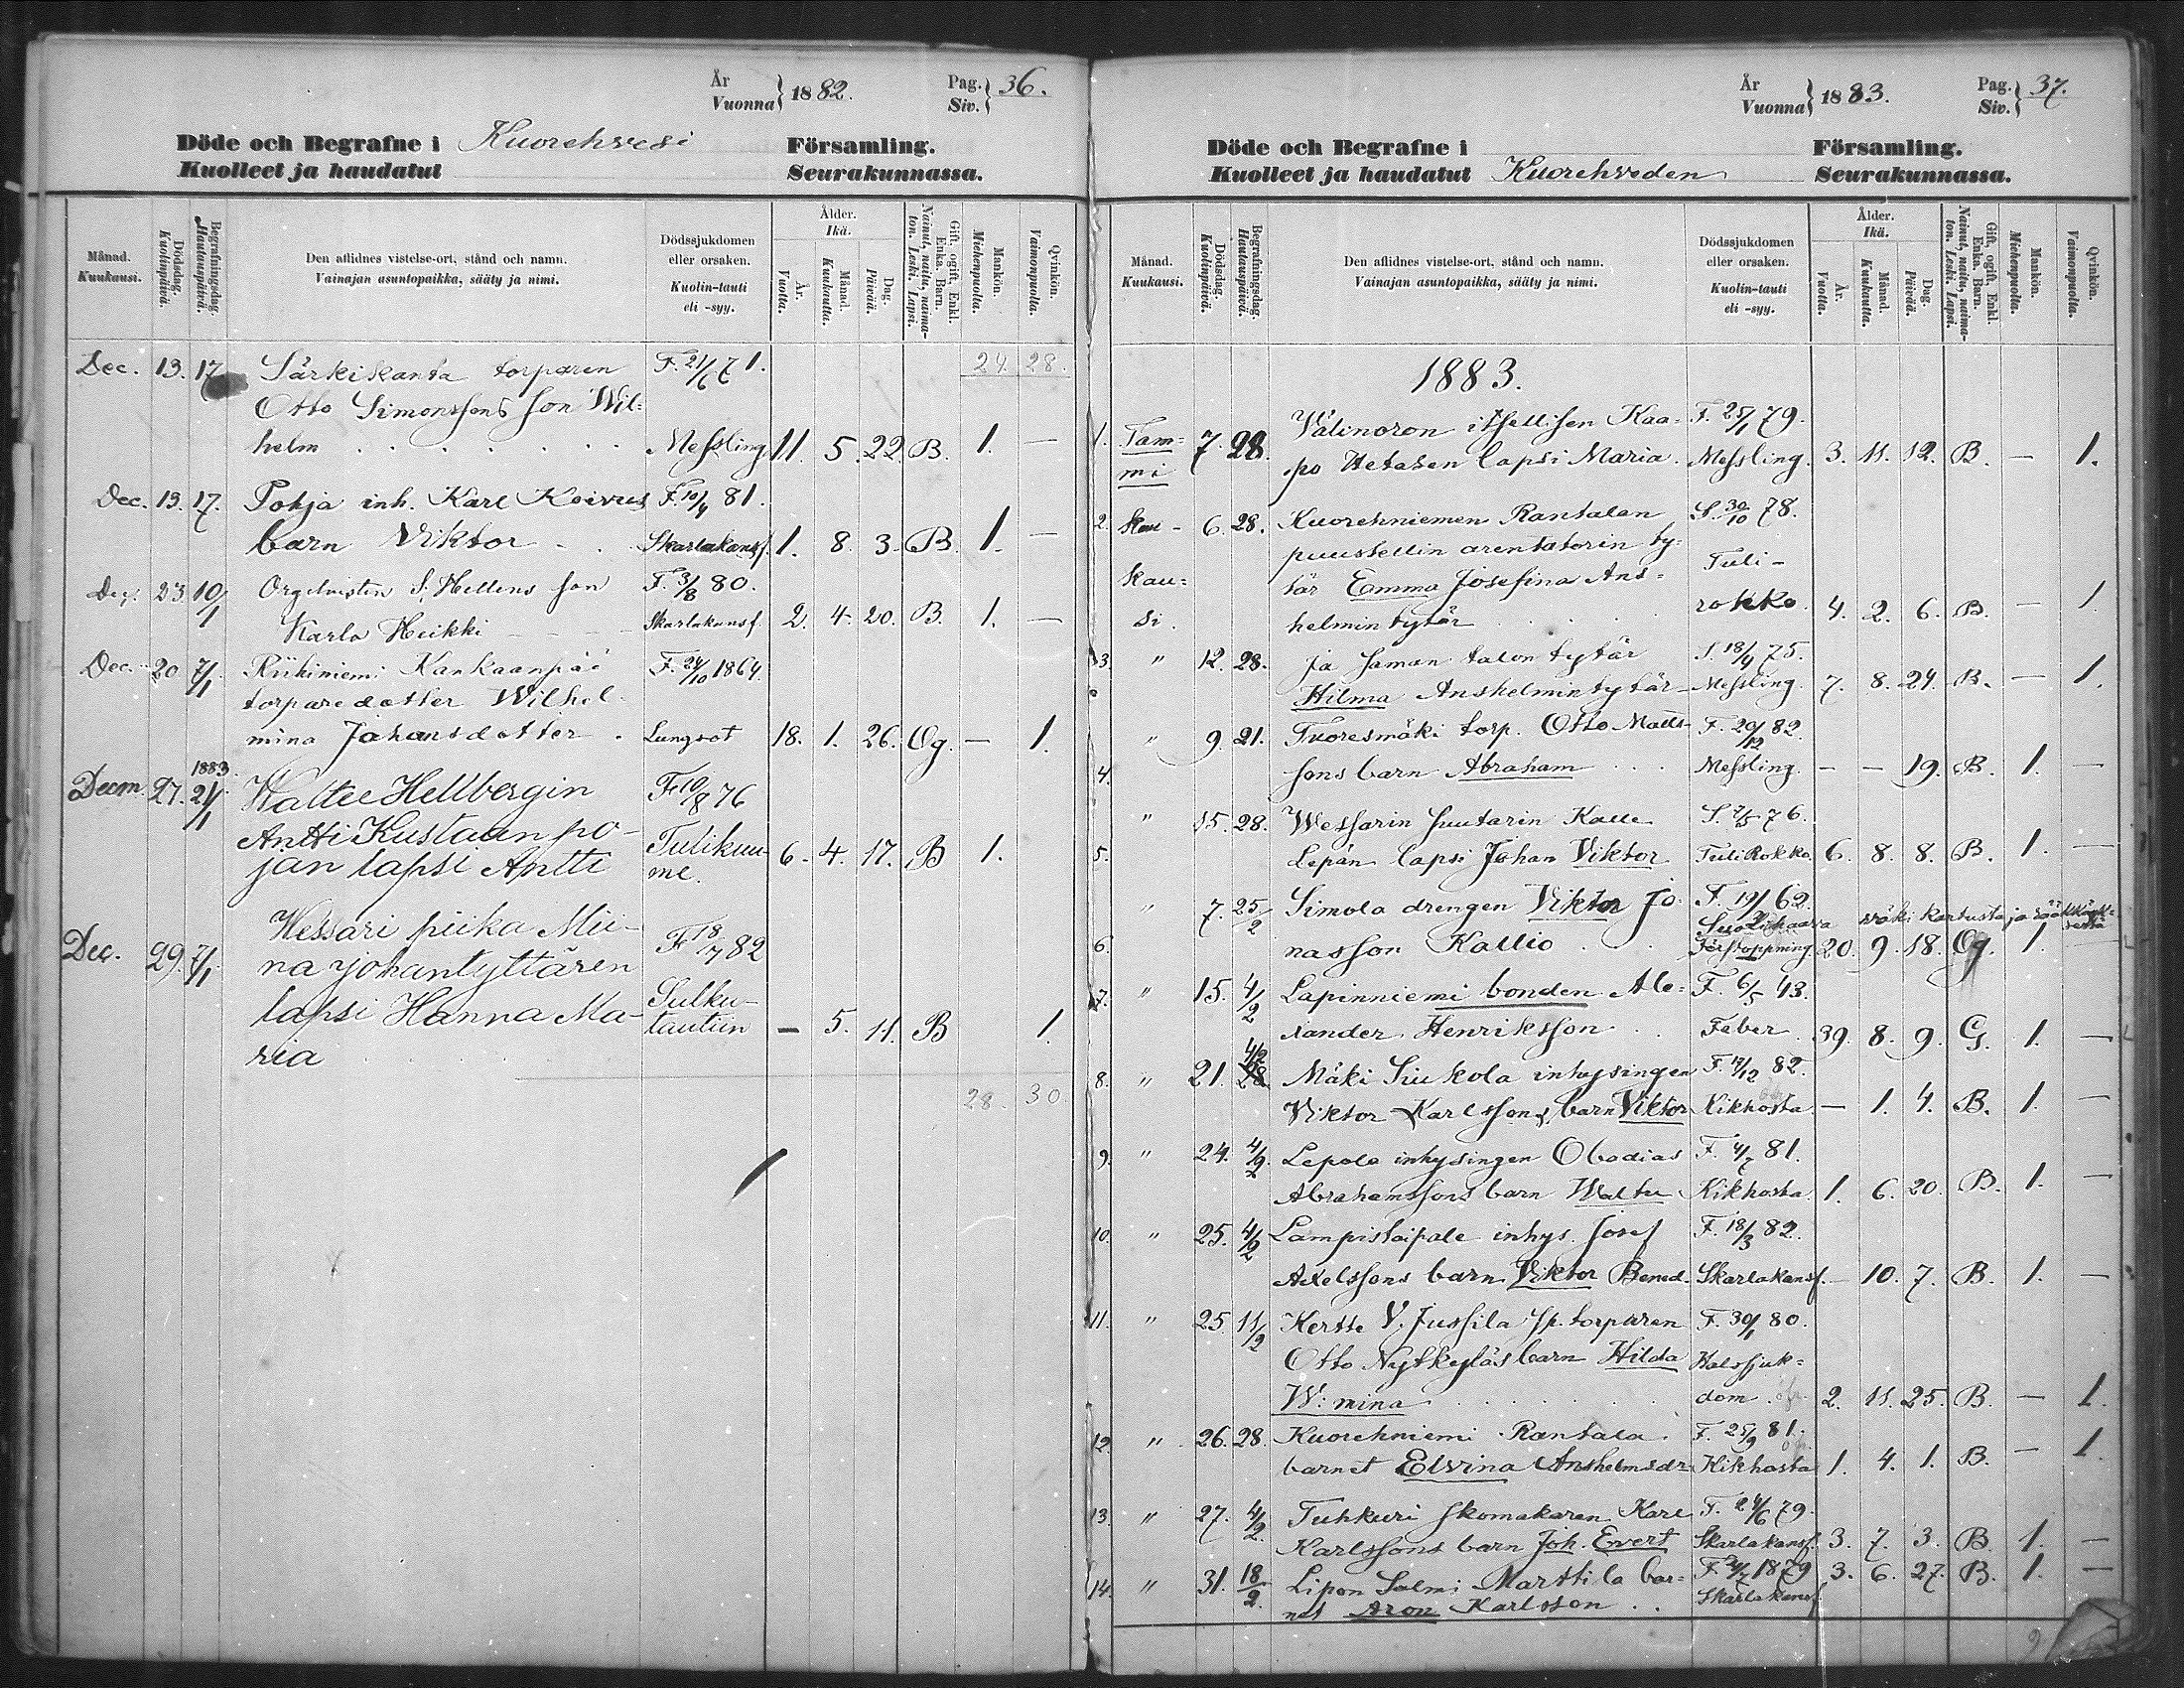 År
Vuonna } 1882.
Pag.
Siv. } 36.
Döde och Begrafne i Kuorehvesi Församling.
Kuolleet ja haudatut Seurakunnassa.
Månad.
Kuukausi.
Dödsdag.
Kuolinpäivä.
Begrafningsdag.
Hautauspäivä.
Den aflidnes vistelse-ort, stånd och namn.
Vainajan asuntopaikka, sääty ja nimi.
Dödssjukdomen
eller orsaken.
Kuolin-tauti
eli -syy.
Ålder.
Ikä.
År.
Vuotta.
Månad.
Kuukautta.
Dag.
Päivää.
Gift, ogift, Enkl.
Enka. Barn.
Nainut, nailu, naima-
ton. Leski. Lapsi.
Mankön.
Miehenpuolta.
Qvinkön.
Vaimonpuolta.
24. 28.
Dec. 13. 17 Särkikanta torparen F. 21/6 71.
Otto Simonssons son Wil=
helm . . . . . . Messling 11. 5. 22. B. 1. —
Dec. 13. 17. Pohja inh. Karl Koivus F. 10/4 81.
barn Viktor - . . Skarlakansf. 1. 8. 3. B. 1. —
Dec. 23. 10/1 Orgelnisten S. Hellens son F. 3/8 80.
Karlo Heikki - - - Skarlakansf. 2. 4. 20. B. 1. —
Dec. 20. 7/1 Riihiniemi Kankaanpää F. 24/10 1864.
torparedotter Wilhel-
mina Johansdotter . Lungsot 18. 1. 26. Og. — 1.
1883.
Decm. 27. 21/1 Waltee Hellbergin F. 10/8 76
Antti Kustaan po-
jan lapsi Antti Tulikuu-
me. 6. 4. 17. B 1.
Dec. 29. 7/1 Wessari piika Mii- F. 18/7 82
na Johantyttären
lapsi Hanna Ma- Sulku-
tautiin — 5. 11. B 1.
ria
28. 30
År
Vuonna } 1883.
Pag.
Siv. } 37.
Döde och Begrafne i Församling.
Kuolleet ja haudatut Kuorehveden Seurakunnassa.
Månad.
Kuukausi.
Dödsdag.
Kuolinpäivä.
Begrafningsdag.
Hautauspäivä.
Den aflidnes vistelse-ort, stånd och namn.
Vainajan asuntopaikka, sääty ja nimi.
Dödssjukdomen
eller orsaken.
Kuolin-tauti
eli -syy.
Ålder.
Ikä.
År.
Vuotta.
Månad.
Kuukautta.
Dag.
Päivää.
Gift, ogift, Enkl.
Enka. Barn.
Nainut, nailu, naima-
ton. Leski. Lapsi.
Mankön.
Miehenpuolta.
Qvinkön.
Vaimonpuolta.
1883.
1. Tam= 7. 28. Välinoron itsellisen Kaa= F. 25/1 79.
mi po Hetasen lapsi Maria. Messling. 3. 11. 12. B. — 1.
2. kuu- 6. 28. Kuorehniemen Rantalan S. 30/10 78.
puustellin arentatorin ty= Tuli-
kau= tär Eamma Josefina Ans=
si. helmin tytär . . . . . rokko. 4. 2. 6. B. — 1.
3. " 12. 28. ja saman talon tytär S. 18/4 75.
Hilma Anshelmin tytär - Messling. 7. 8. 24. B. — 1.
" 9. 21. Tuoresmäki torp. Otto Matts- F. 20/12 82.
4. sons barn Abraham . . . Messling. — — 19. B. 1. —
" 15. 28. Wessarin suutarin Kalle S. 7/5 76.
5. Lepän lapsi Johan Viktor Tuli Rokko. 6. 8. 8. B. 1. —
" 7. 25/2 Simola drengen Viktor Jo- F. 19/3 62.
väki
6. nasson Kallio . . Förstoppning. 20. 9. 18. Og. 1. —
7. " 15. 4/2 Lapinniemi bonden Ale= F. 6/5 43.
xander Henriksson . . Feber 39. 8. 9. G. 1. —
8. " 21. 4/2 28 Mäki Siukola inhysingen F. 17/12 82.
Viktor Karlssons barn Viktor Kikhosta — 1. 4. B. 1. —
9. " 24. 4/2. Lepola inhysingen Obadias F. 4/7 81.
Abrahamssons barn Waltu Kikhosta. 1. 6. 20. B. 1. —
10. " 25. 4/2 Lampistaipale inhys. Josef F. 18/3 82.
Axelssons barn Viktor Bened. Skarlakansf. — 10. 7. B. 1. —
11. " 25. 11/2 Kertte Y. Jussila sp. torparen F. 30/1 80.
Otto Nytkyläs barn Hilda Halssjuk=
W:mina . . . . . dom. 2. 11. 25. B. — 1.
12. " 26. 28. Kuorehniemi Rantala F. 25/9 81.
barnet Elvina Anshelmsdr Kikhosta 1. 4. 1. B. — 1.
13. " 27. 4/2. Tuhkuri skomakaren Karl F. 24/6 79.
Karlssons barn Joh. Evert Skarlakansf. 3. 7. 3. B. 1. —
14. " 31. 18/2. Lipon Salmi Marttila bar= F. 4/7 1879 3. 6. 27. B. 1. —
net Aron Karlsson . . Skarlakansf.
9